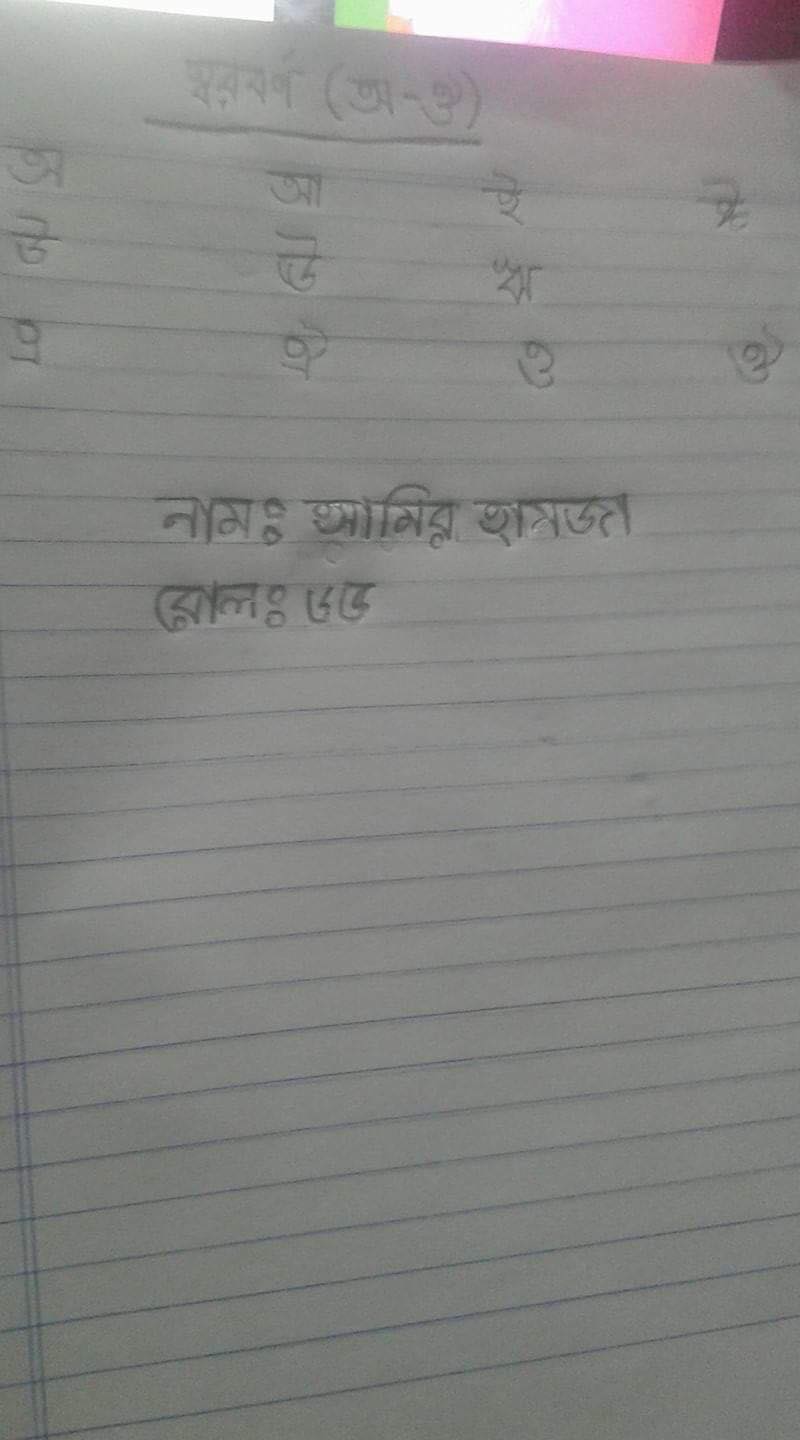 স্বরবর্ণ (অ-ঔ)
অ আ ই ঈ
উ ঊ ঋ
এ ঐ ও ঔ
নামঃ আমির হামজা
রোলঃ ৬৬